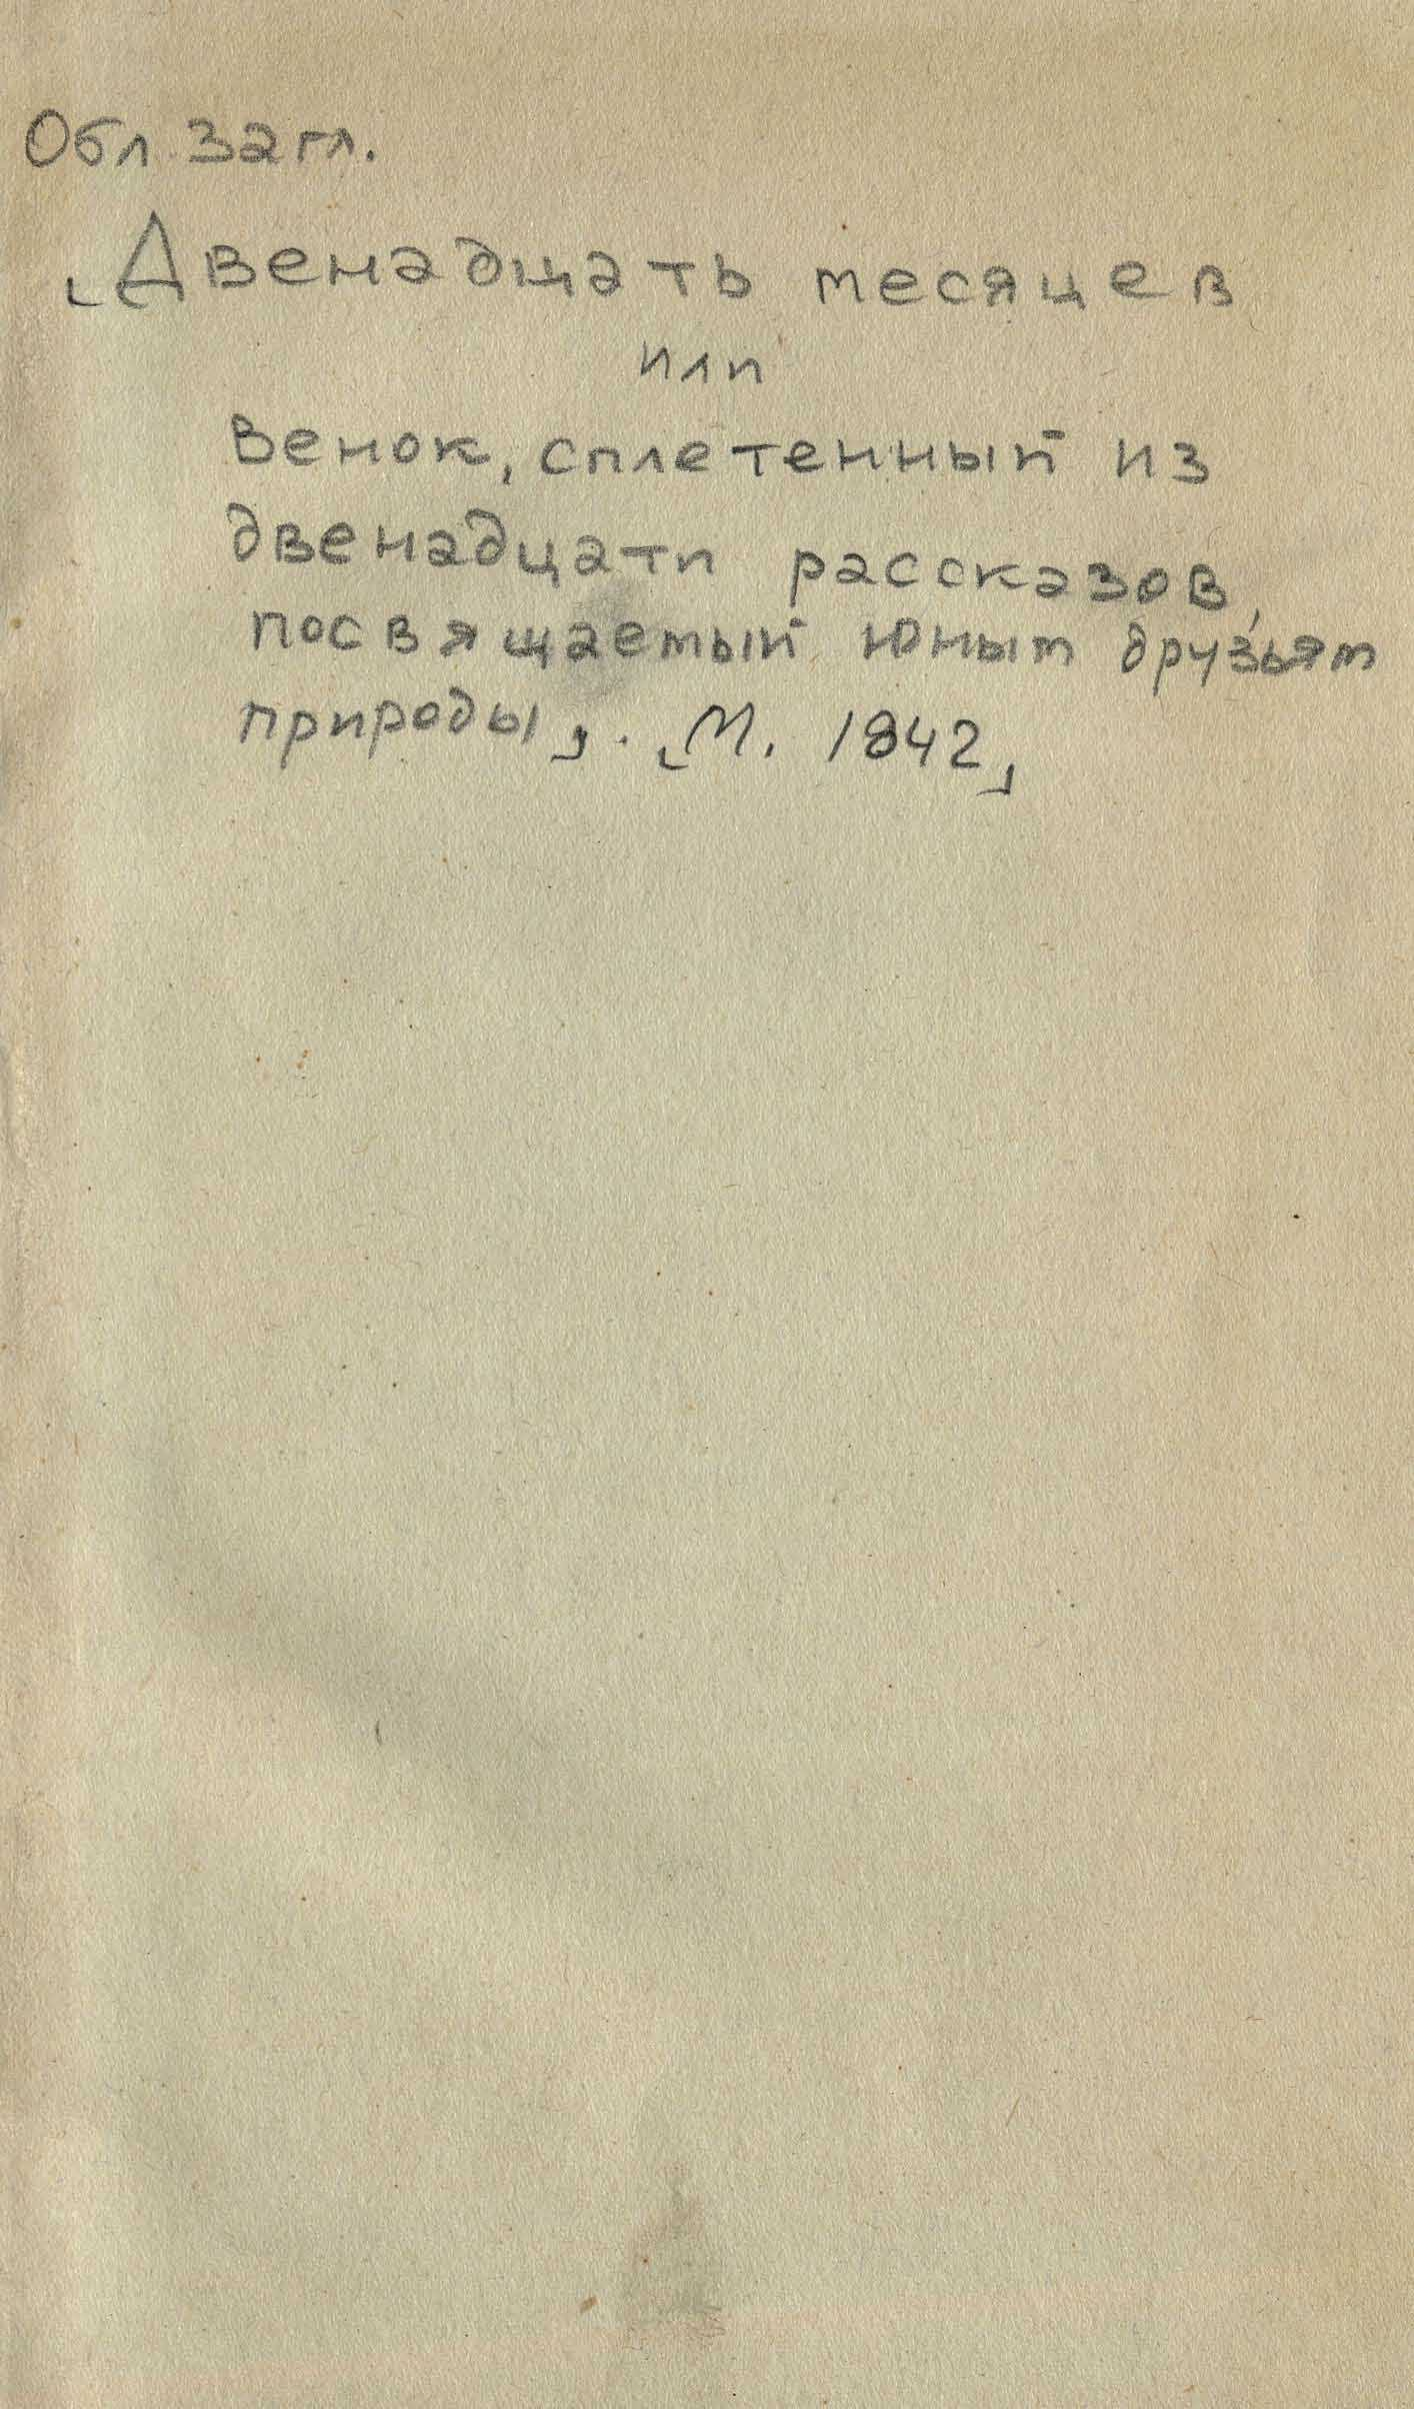 Обл. загл.
[Двенадцать месяцев
или
Венок, сплетенный из
двенадцати рассказов,
посвящаемый юным друзьям
природы]. [М. 1842]